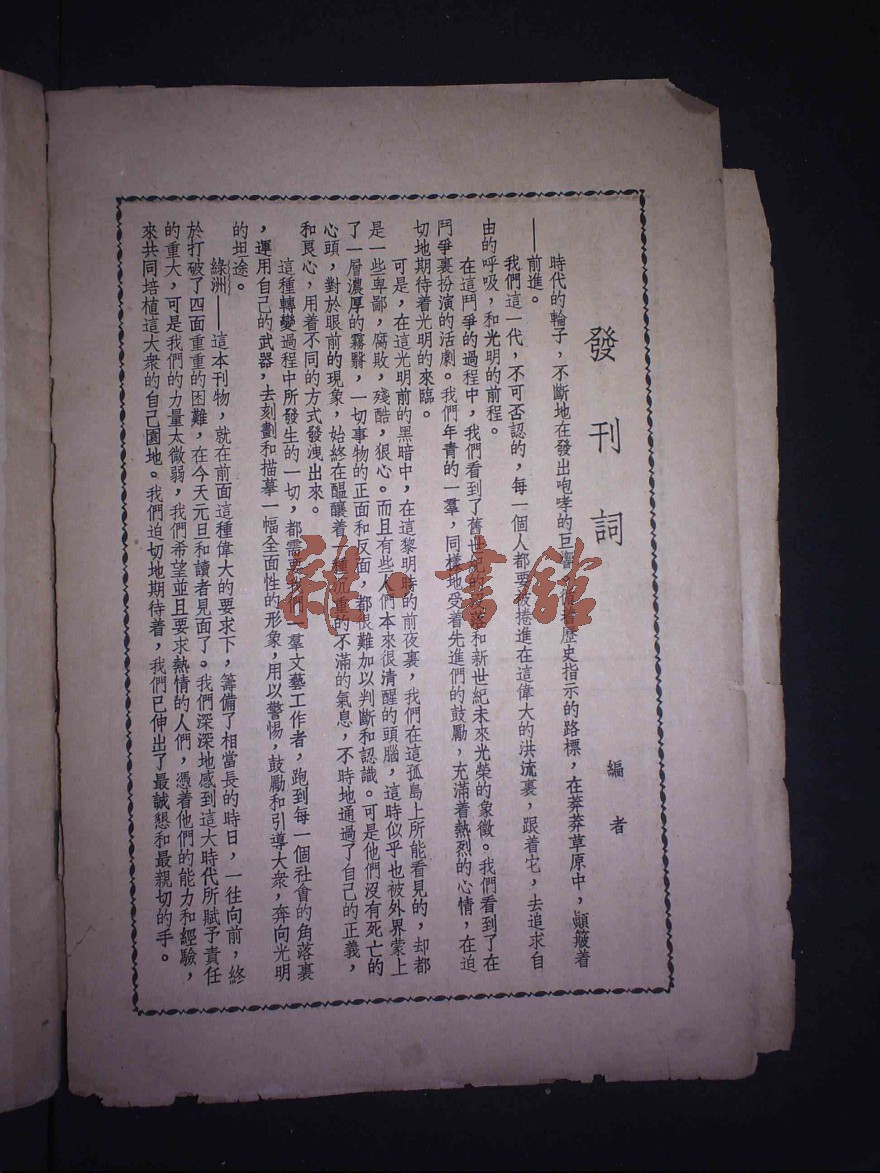 發刊詞
編者
時代的輪子，不斷地在發出咆哮的巨響，循着歷史指示的路標，在莽莽草原中，顛簸着
——前進。
我們這一代，不可否認的，每一個人都要被捲進在這偉大的洪流裏，跟着它，去追求自
由的呼吸，和光明的前程。
在這鬥爭的過程中，我們看到了舊世紀的沒落和新世紀未來光榮的象徵。我們看到了在
鬥爭裏扮演的活劇。我們年青的一羣，同樣地受着先進們的鼓勵，充滿着熱烈的心情，在迫
切地期待着光明的來臨。
可是，在這光明前的黑暗中，在這黎明時的前夜裏，我們在這孤島上所能看見的，却都
是一些卑鄙，腐敗，殘酷，狠心。而且有些人們本來很清醒的頭腦，這時似乎也被外界蒙上
了一層濃厚的霧翳，一切事物的正面和反面，都很難加以判斷和認識。可是他們沒有死亡的
心頭，對於眼前的現象，始終在醞釀着一種沉重的不滿的氣息，不時地通過了自己的正義，
和良心，用着不同的方式發洩出來。
這種轉變過程中所發生的一切，都需要我們一羣文藝工作者，跑到每一個社會的角落裏
，運用自己的武器，去刻劃和描摹一幅全面性的形象，用以警惕，鼓勵和引導大衆，奔向光明
的坦途。
綠洲——這本刊物，就在前面這種偉大的要求下，籌備了相當長的時日，一往向前，終
於打破了四面重重的困難，在今天元旦和讀者見面了。我們深深地感到這大時代所賦予責任
的重大，可是我們的力量太微弱，我們希望並且要求熱情的人們，憑着他們的能力和經驗，
來共同培植這大衆的自己園地。我們迫切地期待着，我們已伸出了最誠懇和最親切的手。
雜·書館